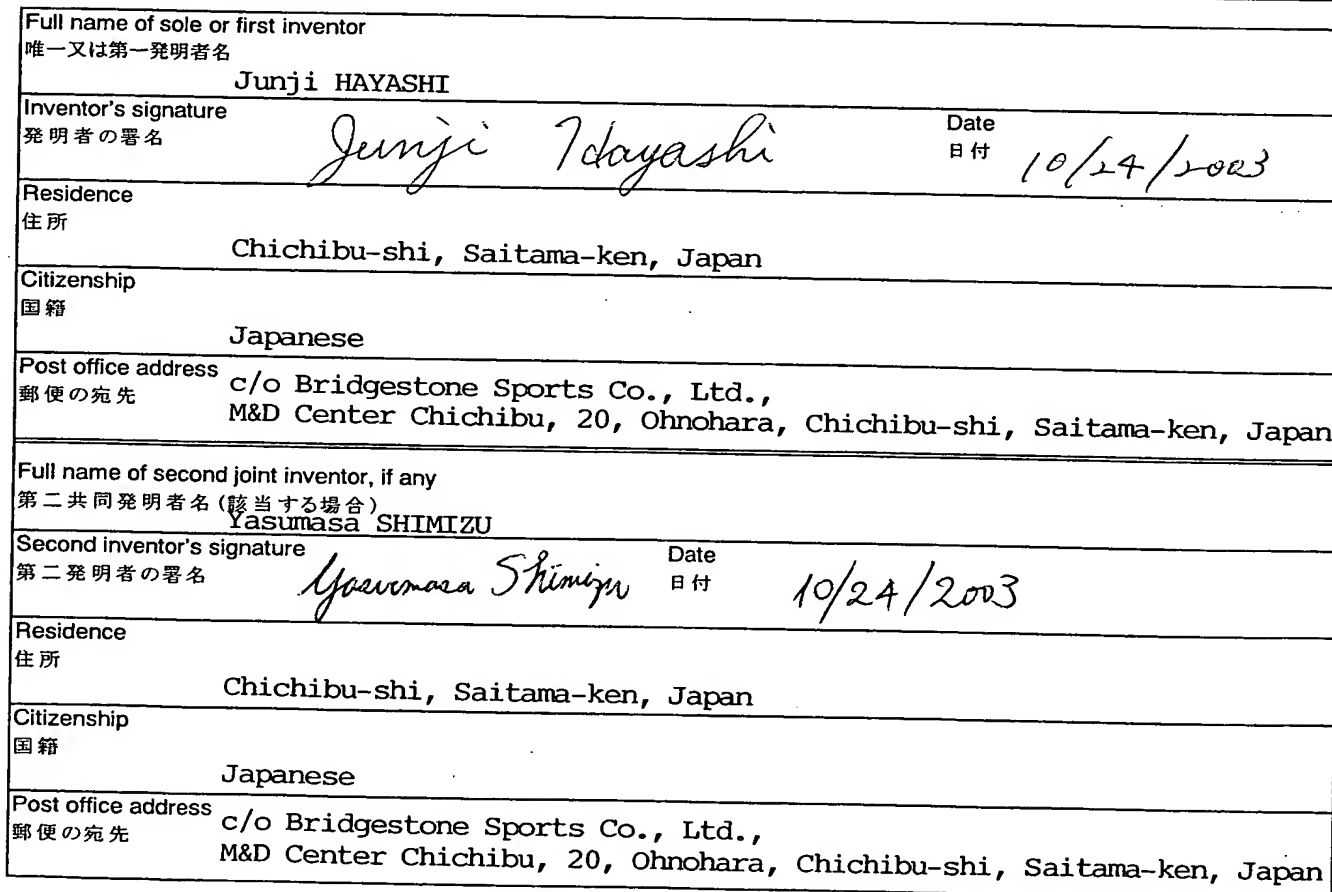 Full name of sole or first inventor
唯一又は第一発明者名
Junji HAYASHI
Inventor's signature
発明者の署名
Junji Hayashi
Date
日付
10/24/2003
Residence
住所
Chichibu-shi, Saitama-ken, Japan
Citizenship
国籍
Japanese
Post office address
郵便の宛先
c/o Bridgestone Sports Co., Ltd.,
M&D Center Chichibu, 20, Ohnohara, Chichibu-shi, Saitama-ken, Japan
Full name of second joint inventor, if any
第二共同発明者名(該当する場合)
Yasumasa SHIMIZU
Second inventor's signature
第二発明者の署名
Yasumasa Shimizu
Date
日付
10/24/2003
Residence
住所
Chichibu-shi, Saitama-ken, Japan
Citizenship
国籍
Japanese
Post office address
郵便の宛先
c/o Bridgestone Sports Co., Ltd.,
M&D Center Chichibu, 20, Ohnohara, Chichibu-shi, Saitama-ken, Japan